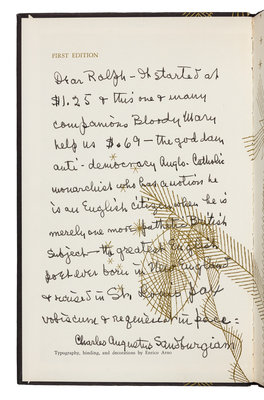 FIRST EDITION
Dear Ralph - It started at
$1.25 & this one & many
companions Bloody Mary
help us $.69 - the god dam
anti-democracy Anglo-Catholic
monarchist who has a notion he
is an English citizen when he is
merely one more pathetic British
subject - the greatest English
poet ever born in New England
& raised in St. Louis pax
vobiscum & requiescat in pace =
Charles Augustus Sandburgian
Typography, binding, and decorations by Enrico Arno